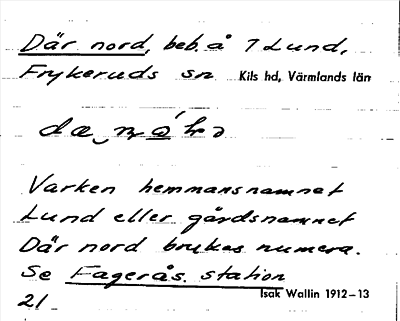 Där nord, beb. å 7 Lund,
Frykeruds sn Kils hd, Värmlands län
Varken hemmansnamnet
Lund eller gårdsnamnet
Där nord brukas numera.
Se Fagerås station
21 Isak Wallin 1912–13